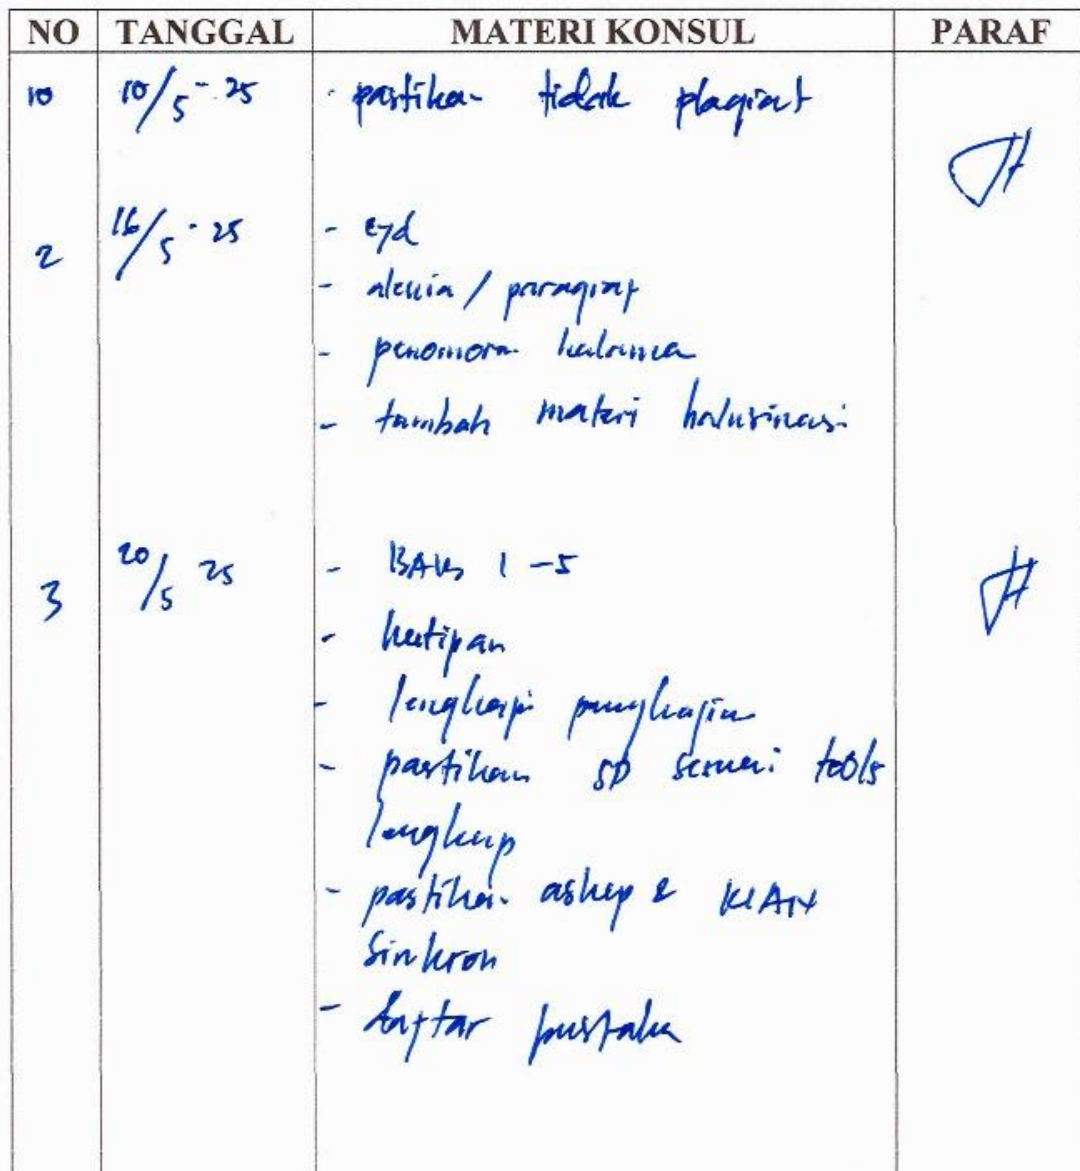 NO TANGGAL MATERI KONSUL PARAF
10 10/5-25 - pastikan tidak plagiat
2 16/5-25 - eyd
- alenia / paragraf
- penomoran halaman
- tambah materi halusinasi
3 20/5 25 - BAB 1-5
- kutipan
- lengkapi pengkajian
- pastikan SP sesuai tools
lengkap
- pastikan askep & KIAN
sinkron
- daftar pustaka